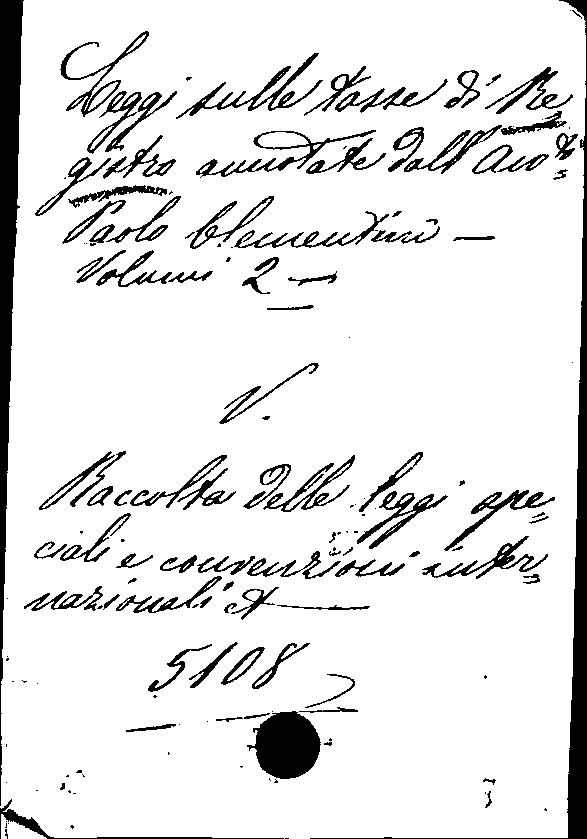 Leggi sulle tasse di Re
gistro annotate dall'Avv.to
Paolo Clementini —
Volumi 2 —
V.
Raccolta delle leggi spe=
ciali e convenzioni inter=
nazionali &
5108